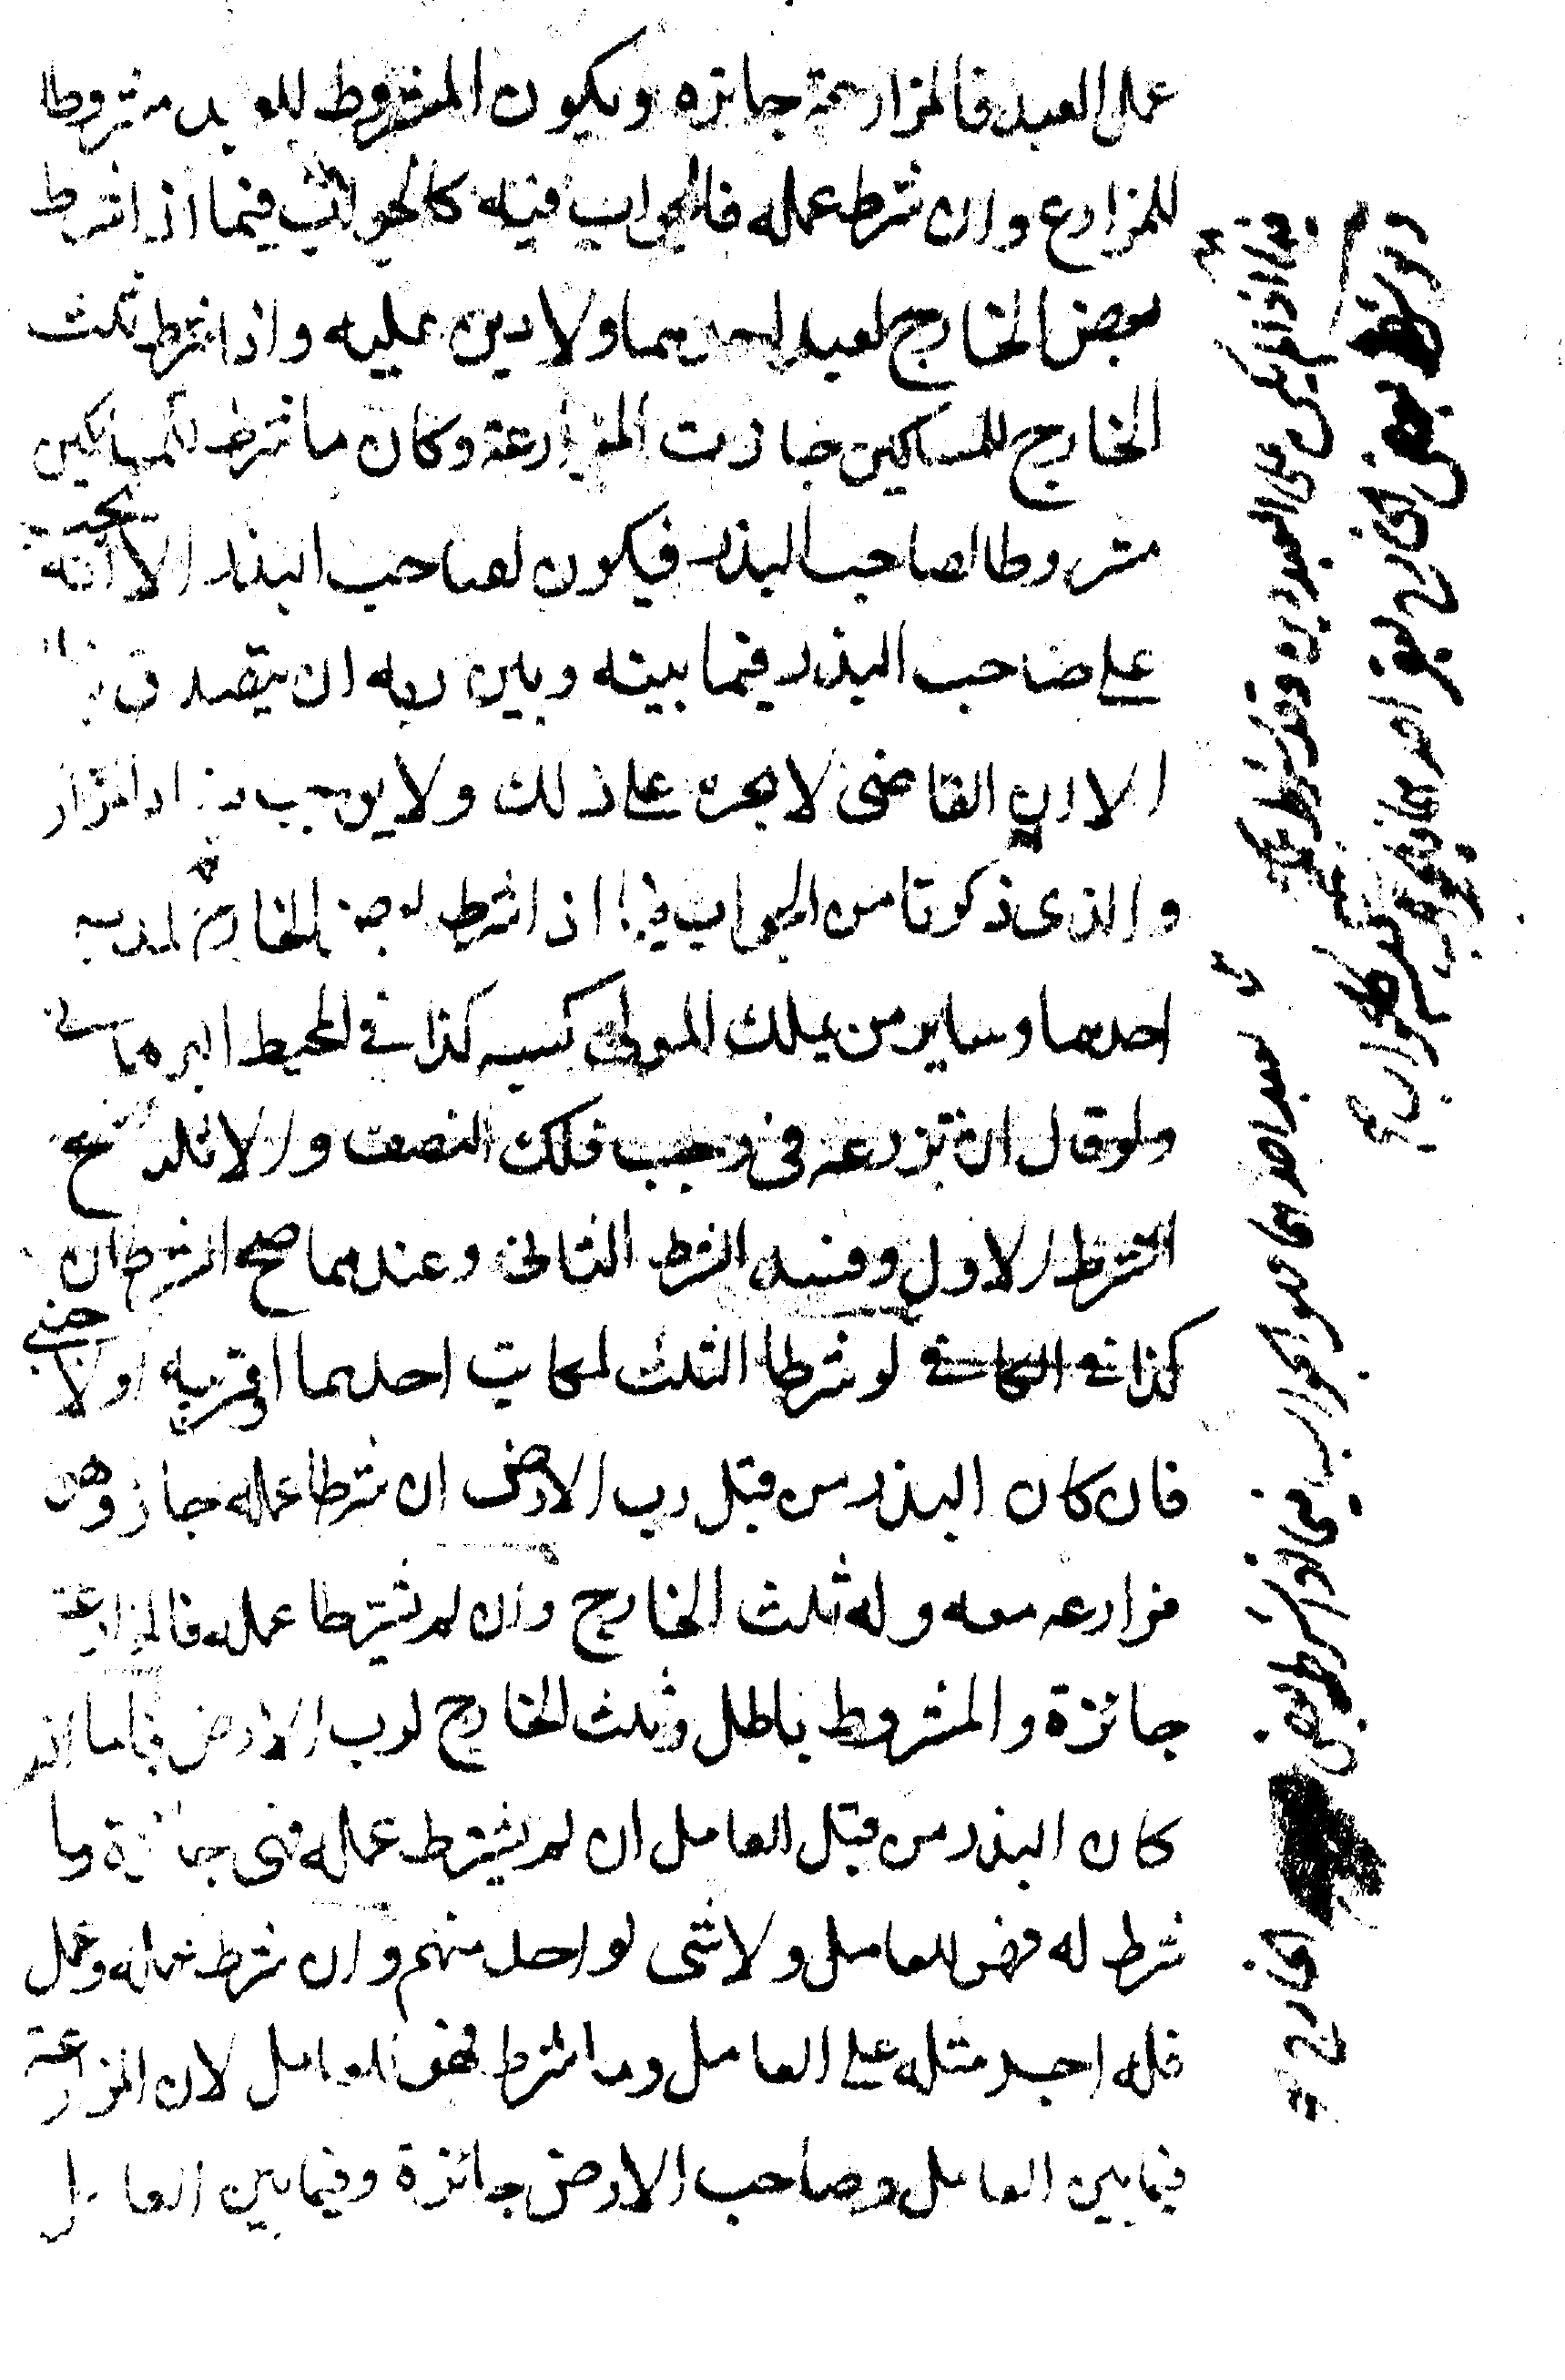 عمل العبد فالمزارعة جائزه ويكون المشروط للعبد مشروطا
للمزارع وان شرط عمله فالجواب فيه كالجواب فيما اذا شرط
بعض الخارج لعبد احدهما ولا دين عليه واذا شرط ثلث
الخارج للمساكين جازت المزارعة وكان ما شرط للمساكين
مشروطا لصاحب البذر فيكون لصاحب البذر الا انه يجب
على صاحب البذر فيما بينه وبين ربه ان يتصدق
الا ان القاضى لا يجبره على ذلك ولا يوجب
والذى ذكرنا من الجواب فيما اذا شرط الخارج
احدهما وساير من يملك المولى كسبه كذا في المحيط البرهاني
ولو قال ان تزرعه في رجب فلك النصف والا ثلث صح
الشرط الاول وفسد الشرط الثاني وعندهما صح الشرطان
كذا في الكافي لو شرطا الثلث لمكاتب احدهما او قريبه او لاجنبي
فان كان البذر من قبل رب الارض ان شرطا عمله جاز وهو
مزارعه معه وله ثلث الخارج وان لم يشترطا عمله فالمزارعة
جائزة والمشروط باطل وثلث الخارج لرب الارض
كان البذر من قبل العامل ان لم يشترط عمله فهي جائزة وما
شرط له فهو للعامل ولا شى لواحد منهم وان شرط عمله وعمل
فله اجر مثله على العامل وما شرط فهو للعامل لان المزارعة
فيما بين العامل وصاحب الارض جائزة وفيما بين العامل
فيما اذا لم يكن على العبد دين وقد شرط عمله
لعبد احدهما هو الجواب فيما اذا شرط بعض
الخارج
بعض الخارج لبقر احدهما